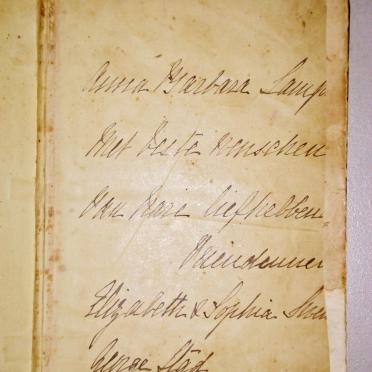 Anna Barbara Lamp
Met beste wenschen
van hare liefhebben
Vriendinnen
Elizabeth & Sophia
George Stad